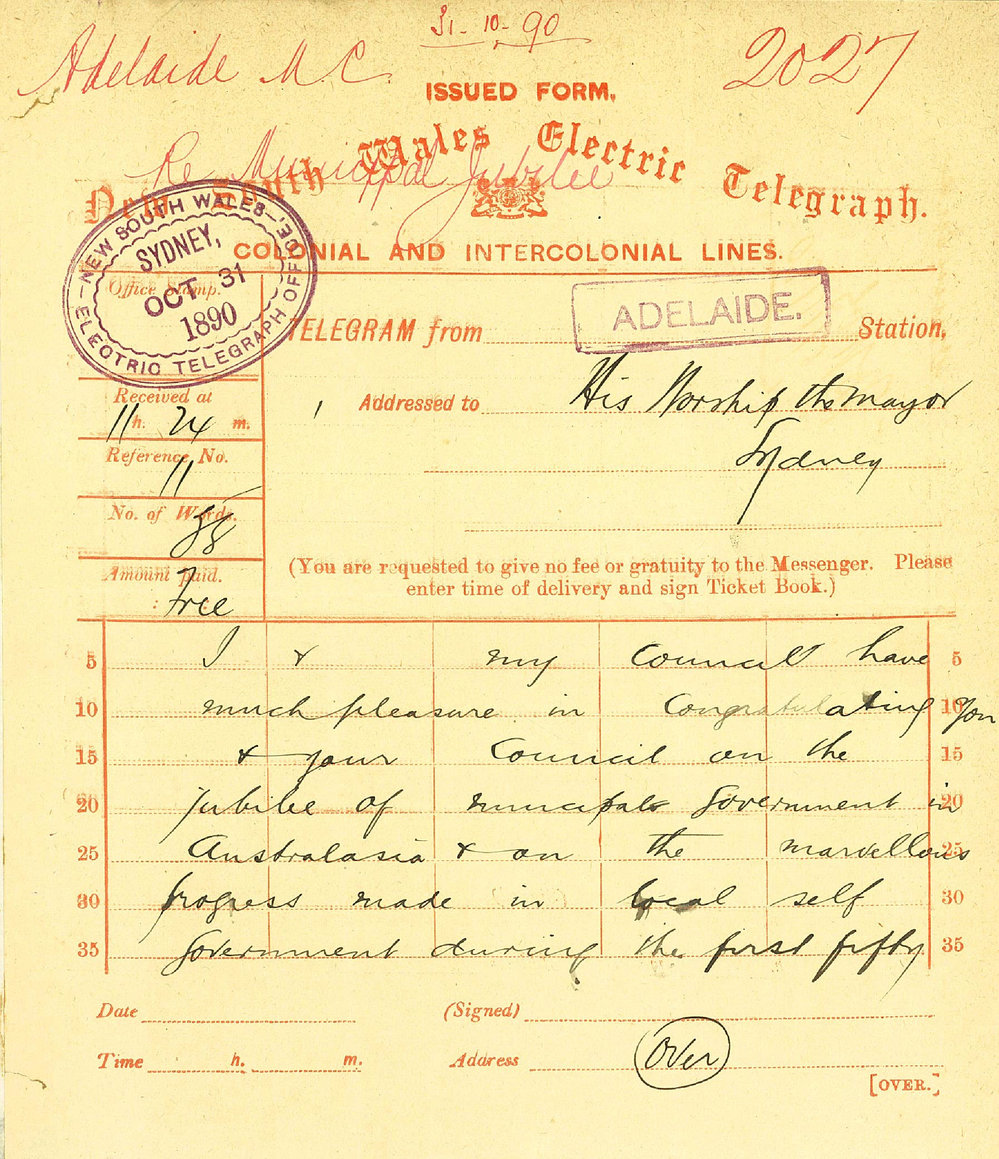 31-10-90
Adelaide M C
2027
ISSUED FORM.
New South Wales Electric Telegraph.
Re Municipal Jubilee
COLONIAL AND INTERCOLONIAL LINES.
—NEW SOUTH WALES—
SYDNEY,
OCT 31
1890
ELECTRIC TELEGRAPH OFFICE.
Office Stamp.
TELEGRAM from ADELAIDE. Station,
Received at
11 h. 24 m.
Addressed to His Worship the Mayor
Sydney
Reference No.
11
No. of Words.
38
Amount paid.
Free
(You are requested to give no fee or gratuity to the Messenger. Please
enter time of delivery and sign Ticket Book.)
5 I & my Council have 5
10 much pleasure in congratulating you 10
15 & your Council on the 15
20 Jubilee of municipal Government in 20
25 Australasia & on the marvellous 25
30 progress made in local self 30
35 Government during the first fifty 35
Date (Signed)
Time h. m. Address Over
[OVER.]